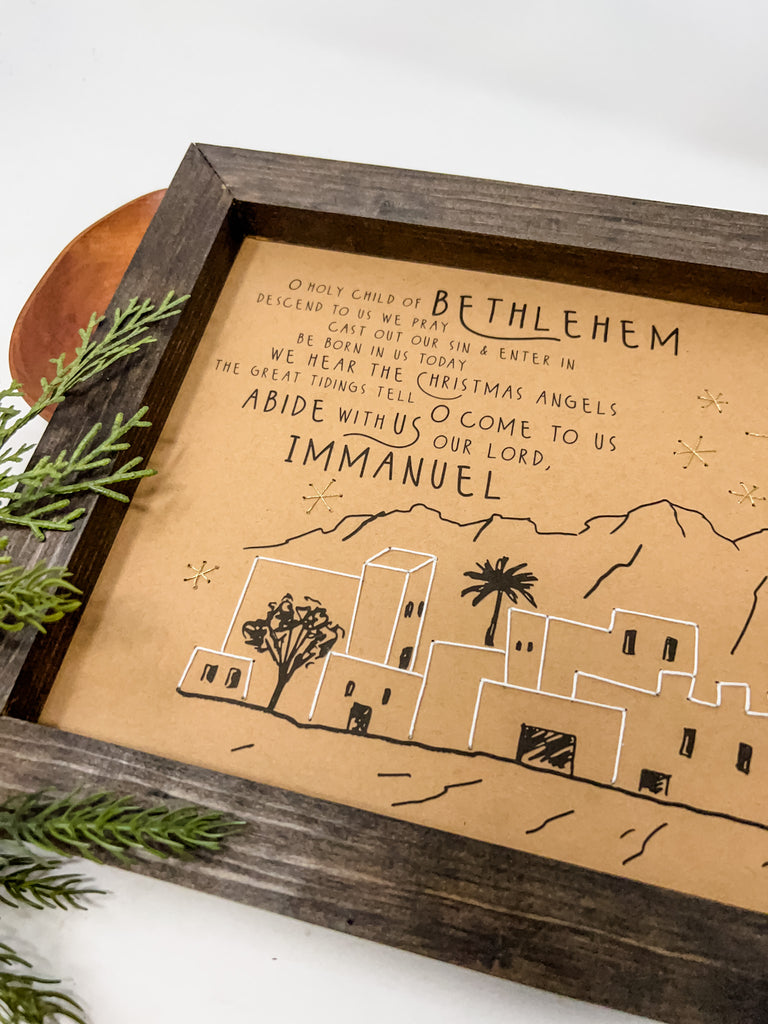 O HOLY CHILD OF BETHLEHEM
DESCEND TO US WE PRAY
CAST OUT OUR SIN & ENTER IN
BE BORN IN US TODAY
WE HEAR THE CHRISTMAS ANGELS
THE GREAT TIDINGS TELL
ABIDE WITH US O COME TO US
OUR LORD,
IMMANUEL